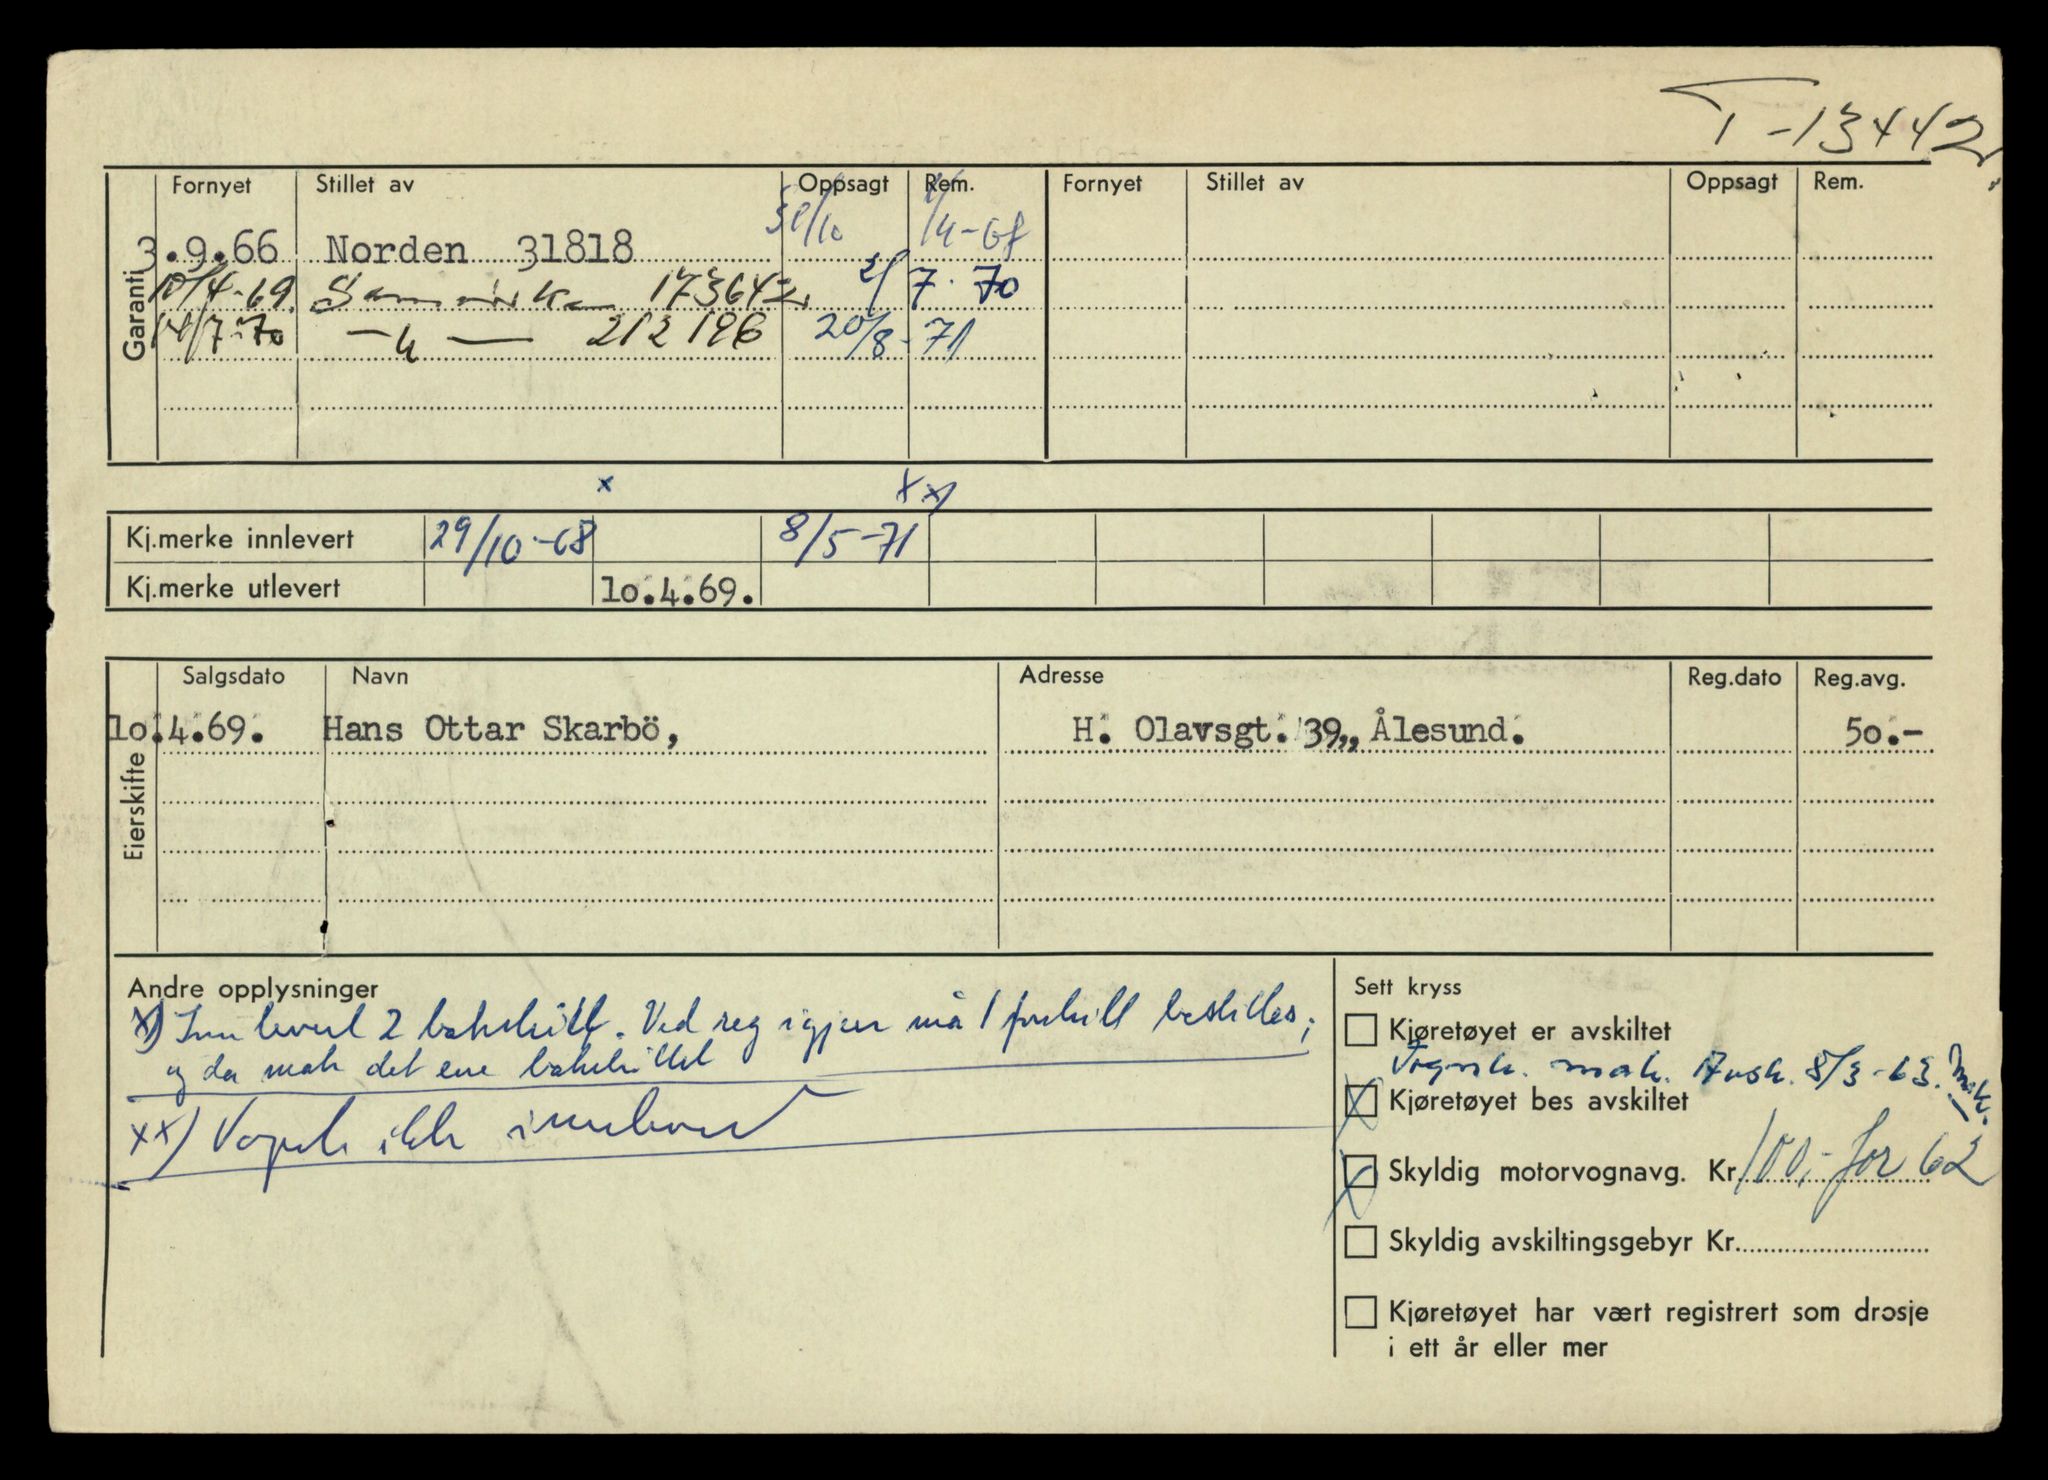 T-13442
Garanti
Fornyet Stillet av Oppsagt Rem. Fornyet Stillet av Oppsagt Rem.
3.9.66 Norden 31818
10/4-69. 17364 2/7.70
14/7-70 —"— 212196 20/8-71
x xx)
Kj.merke innlevert 29/10-68 8/5-71
Kj.merke utlevert 10.4.69.
Eierskifte
Salgsdato Navn Adresse Reg.dato Reg.avg.
10.4.69. Hans Ottar Skarbö, H. Olavsgt. 39,, Ålesund. 50.-
Andre opplysninger
x) Innlevert 2 bakskilt. Ved reg igjen må 1 forskilt bestilles;
og da mak det ene bakskiltet
xx) Vognk ikke innlevert
Sett kryss
Kjøretøyet er avskiltet
Vognk. mak. Avsk. 8/3-63.
Kjøretøyet bes avskiltet
Skyldig motorvognavg. Kr. 100,- for 62
Skyldig avskiltingsgebyr Kr.
Kjøretøyet har vært registrert som drosje
i ett år eller mer